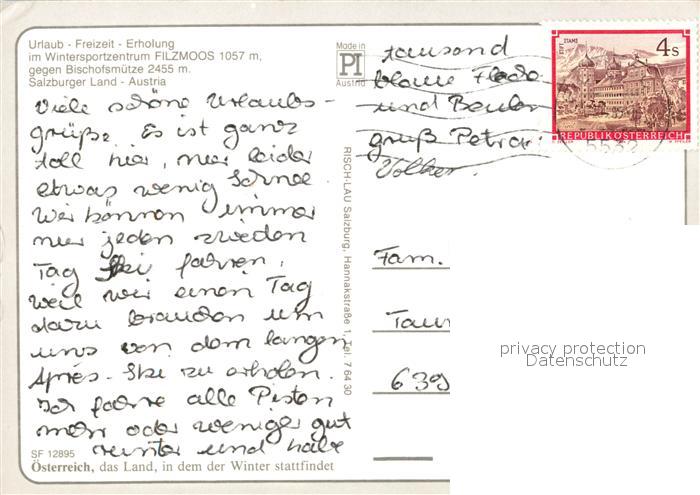 Urlaub - Freizeit - Erholung
im Wintersportzentrum FILZMOOS 1057 m,
gegen Bischofsmütze 2455 m.
Salzburger Land - Austria
Viele schöne Urlaubs-
grüße. Es ist ganz
toll hier, nur leider
etwas wenig Schnee.
Wir können immer
nur jeden zweiten
Tag Ski fahren,
weil wir einen Tag
dazu brauchen um
uns von dem langen
Après-Ski zu erholen.
Ich fahre alle Pisten
mehr oder weniger gut
runter und habe
SF 12895
Österreich, das Land, in dem der Winter stattfindet
Made in
PI
Austria
RISCH-LAU Salzburg, Hannakstraße 1, Tel. 7 64 30
tausend
blaue Flecke
und Beulen
gruß Petra
Volker
STIFT STAMS
4 S
REPUBLIK ÖSTERREICH
5532
Fam.
Tau
639
privacy protection
Datenschutz